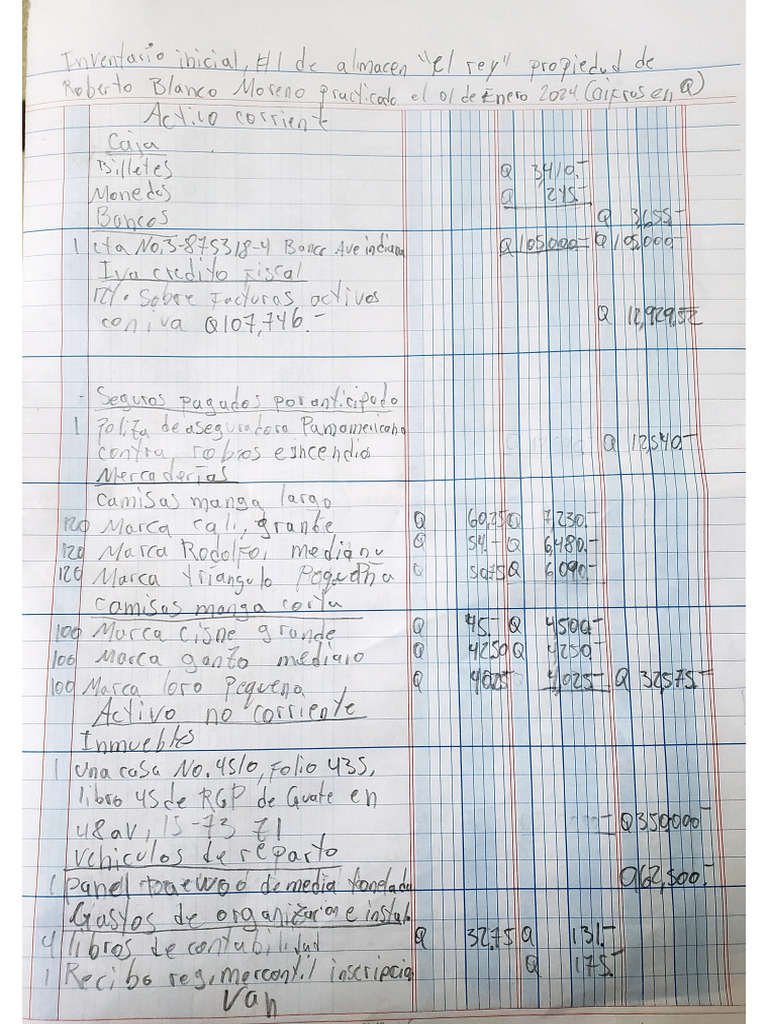 Inventario inicial, #1 de almacen "el rey" propiedad de
Roberto Blanco Moreno practicado el 01 de Enero 2024 (cifras en Q)
Activo corriente
Caja
Billetes Q 3,410.-
Monedas Q 245.-
Bancos Q 3,655.-
1 cta No. 3-875318-4 Banco Q 105,000.- Q 105,000.-
Iva credito Fiscal
12% Sobre Facturas activos
con iva Q107,746.- Q 12,929.52
- Seguros pagados por anticipado
1 Poliza de aseguradora
contra robros e incendio Q 12,540.-
Mercaderías
camisas manga largo
120 Marca cali, grante Q 60,25 Q 7,230.-
120 Marca Rodolfo, mediano Q 54.- Q 6,480.-
120 Marca triángulo Pequeña Q 50.75 Q 6,090.-
camisas manga corta
100 Marca cisne grande Q 45.- Q 4,500.-
100 Marca ganzo mediano Q 4250 Q 4,250.-
100 Marca loro Pequena Q 40.25 4,025.- Q 32,575.-
Activo no corriente
Inmuebles
1 una casa No. 4510, Folio 435,
libro 45 de RGP de Guate en
48 av, 15-73 Z1 Q350,000.-
vehiculos de reparto
1 panel de media tonelada Q62,500.-
Gastos de organizacion e instala
4 libros de contabilidad Q 32.75 Q 131.-
1 Recibo reg, mercantil inscripcion Q 175.-
Van